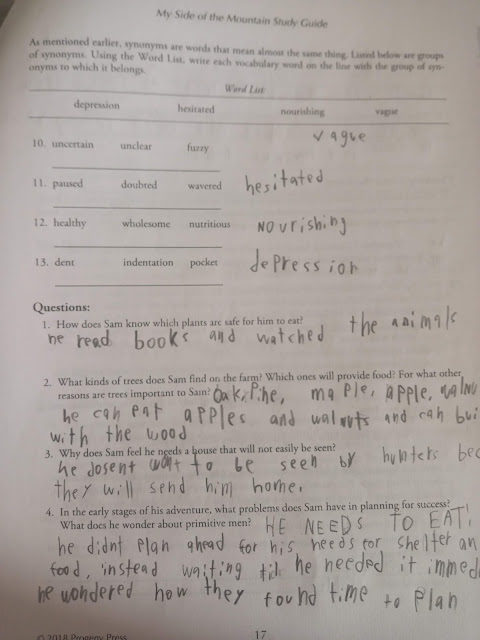 My Side of the Mountain Study Guide
As mentioned earlier, synonyms are words that mean almost the same thing. Listed below are groups
of synonyms. Using the Word List, write each vocabulary word on the line with the group of syn-
onyms to which it belongs.
Word List
depression hesitated nourishing vague
10. uncertain unclear fuzzy vague
11. paused doubted wavered hesitated
12. healthy wholesome nutritious nourishing
13. dent indentation pocket depression
Questions:
1. How does Sam know which plants are safe for him to eat?
he read books and watched the animals
2. What kinds of trees does Sam find on the farm? Which ones will provide food? For what other
reasons are trees important to Sam? Oak, Pine, maple, apple, walnu
he can eat apples and walnuts and can bui
with the wood
3. Why does Sam feel he needs a house that will not easily be seen?
he dosent want to be seen by hunters bec
they will send him home.
4. In the early stages of his adventure, what problems does Sam have in planning for success?
What does he wonder about primitive men? HE NEEDS TO EAT!
he didnt plan ahead for his needs for shelter an
food, instead waiting till he needed it immed
he wondered how they found time to plan
© 2018 Progeny Press 17